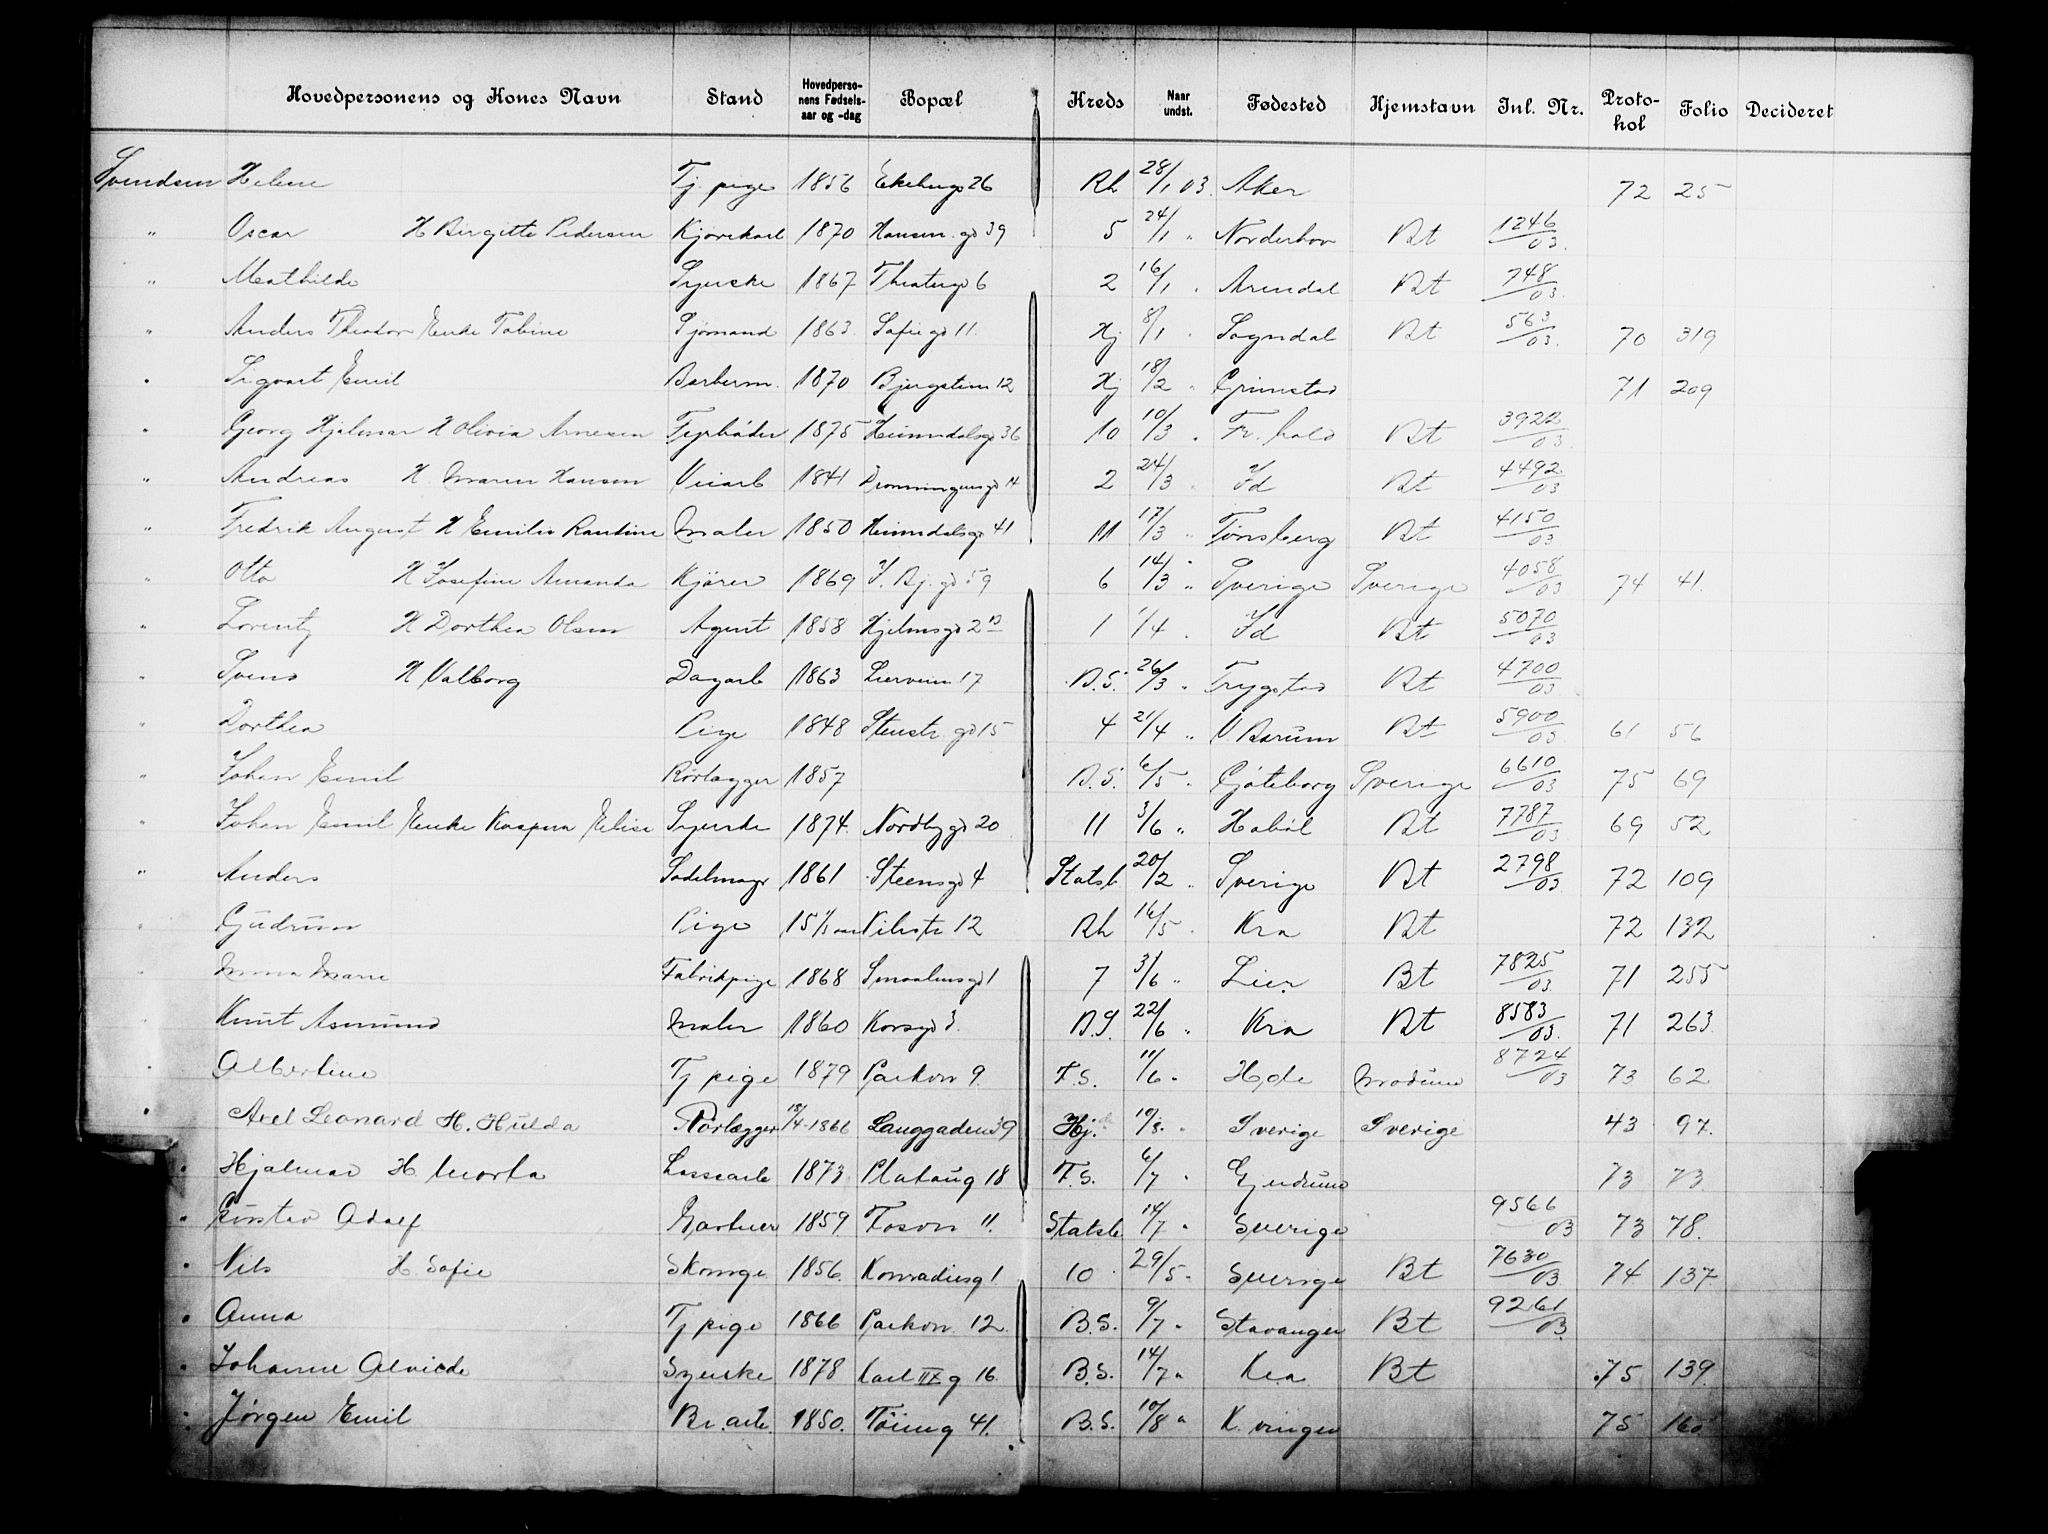 Hovedpersonens og Kones Navn Stand Hovedpersonens Fødselsaar og -dag Bopæl Kreds Naar undst. Fødested Hjemstavn Inl. Nr. Protokol Folio Decideret
Svendsen Helene Tj pige 1856 Ekebergg 26 Rh 28/1 03. Aker 72 25
" Oscar H Birgitte Pedersen Kjørekarl 1870 Hansen. gd 39 5 24/1 " Norderhov Bt 1246/03.
" Mathilde Syerske 1867 Theatergd 6 2 16/1 . Arendal Bt 748/03.
" Anders Theodor Enke Tobine Sjømand 1863. Sofiegd 11. Hj 8/1 . Sogndal Bt 563/03. 70 319
" Sigvart Emil Barberm. 1870 Bjergstien 12 Hj 18/2 " Grimstad 71 209
" Georg Hjalmar H Olivia Arnesen Fyrbøder 1875 Heimdalsgd 36 10 10/3 . Fr. hald Bt 3922/03
" Andreas H. Maren Hansen Veiarb 1841 Dronningensgd 14 2 24/3 " Id Bt 4492/03
" Fredrik August H Emilie Randine Maler 1850 Heimdalsgd 41 11 17/3 " Tønsberg Bt 4150/03
" Otto H Josefine Amanda Kjører 1869 St. Bj. gd 59 6 14/3 " Sverige Sverige 4058/03 74 41.
" Lorentz H Dorthea Olsen Agent 1858 Hjelmsgd 2 1 1/4 . Id Bt 5070/03
" Svend H Valborg Dagarb 1863 Lierveien 17 B.S. 26/3 " Trygstad Bt 4700/03
" Dorthea Pige 1848 Stenstr gd 15 4 21/4 " V. Bærum Bt 5900/03 61 56
" Johan Emil Rørlægger 1857 B.S. 6/5 " Gjøteborg Sverige 6610/03 75 69
" Johan Emil Enke Kaspera Elise Syerske 1874. Nordbygd 20 11 3/6 " Hobøl Bt 7787/03 69 52
" Anders Sadelmagr 1861 Steensgd 4 Statsb. 20/2 " Sverige Bt 2798/03. 72 109
" Gudrun Pige 15 Vibestr 12 Rh 16/5 . Kra Bt 72 132
" Marie Fabrikpige 1868 Smaalensgd 1 7 3/6 " Lier Bt 7825/03. 71 255
Knut Asmund Maler 1860 Korsgd 3. B.S. 22/6 " Kra Bt 8583/03. 71 263.
" Albertine Tj pige 1879 Parkvn 9. F.S. 11/6 " Hole Modum 8724/03 73 62
" Axel Leonard H. Hulda Rørlægger 18/4-1866 Langgaden 39 Hj. 10/8. " Sverige Sverige 43 97.
" Hjalmar H Marta Lossearb 1873 Platoug 18 F.S. 6/7 " Gjerdrum 73 73
" Gustav Adolf Gartner 1859. Fosvn 11. Statsb 14/7 " Sverige 9566/03 73 78.
" Nils H. Sofie Skomgr 1856. Konradiesg 1. 10 29/5 " Sverige Bt 7630/03. 74 137
" Anna Tj pige 1866 Parkvn. 12. B.S. 9/7 " Stavanger Bt 9261/03.
" Johanne Alvilde Syerske 1878 Carl IX g 16. B.S. 14/7 " Kra Bt 75 139.
" Jørgen Emil Br. arb. 1850. Tøieng 41. B.S. 10/8 " K. vinger 75 160